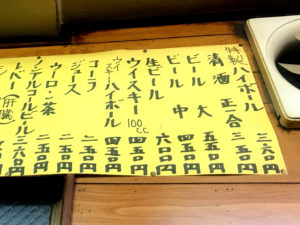 特製ハイボール 三六〇円
清酒 正一合 三五〇円
ビール 大 五五〇円
ビール 中 五〇〇円
生ビール 六〇〇円
ウイスキー 100cc 四五〇円
ウイスキーハイボール 四五〇円
コーラ 二五〇円
ジュース 二五〇円
ウーロン茶 二五〇円
ノンアルコールビール 三六〇円
レバー(肝臓)